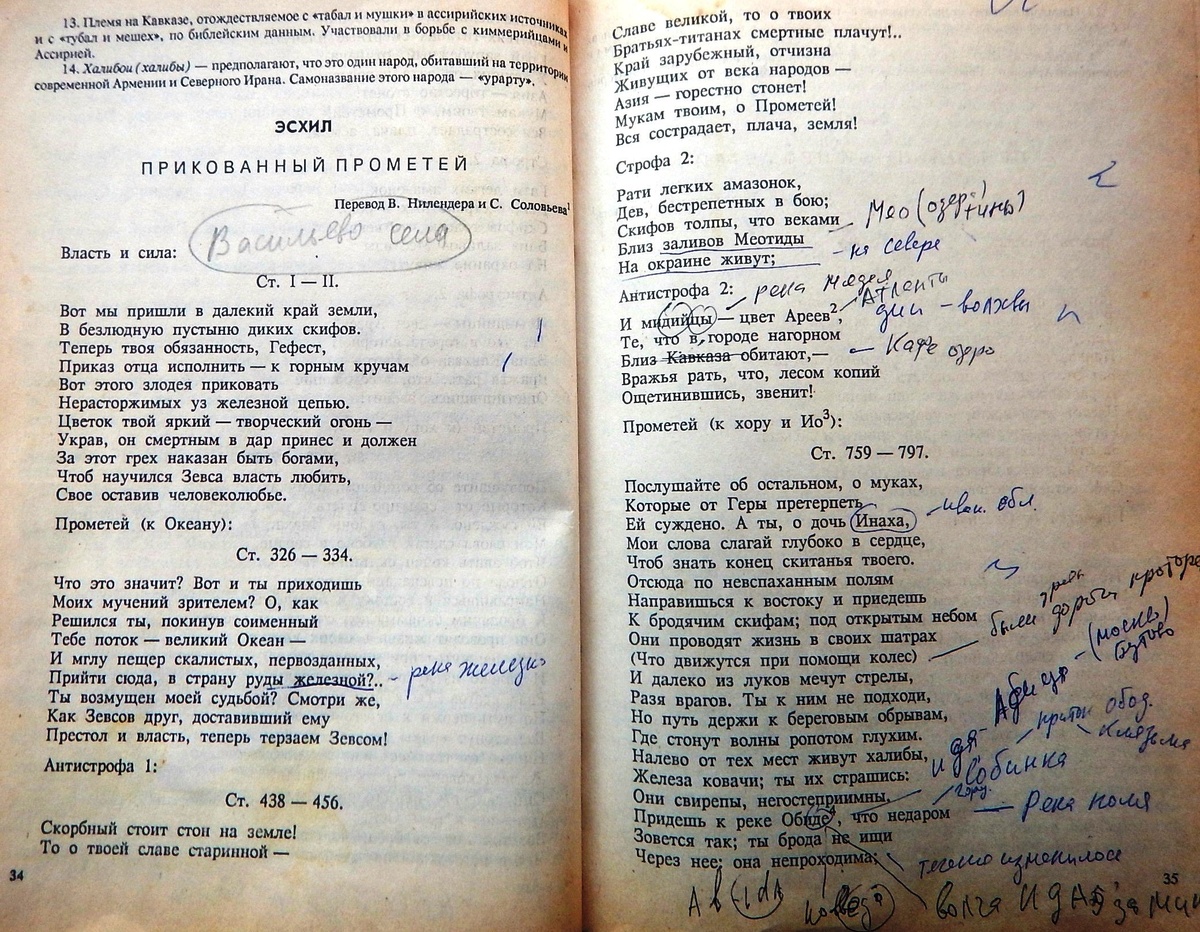 13. Племя на Кавказе, отождествляемое с «табал и мушки» в ассирийских источниках
и с «тубал и мешех», по библейским данным. Участвовали в борьбе с киммерийцами и
Ассирией.
14. Халибои (халибы) — предполагают, что это один народ, обитавший на территории
современной Армении и Северного Ирана. Самоназвание этого народа — «урарту».
ЭСХИЛ
ПРИКОВАННЫЙ ПРОМЕТЕЙ
Перевод В. Нилендера и С. Соловьева¹
Власть и сила: Васильево села
Ст. I — II.
Вот мы пришли в далекий край земли,
В безлюдную пустыню диких скифов.
Теперь твоя обязанность, Гефест,
Приказ отца исполнить — к горным кручам
Вот этого злодея приковать
Нерасторжимых уз железной цепью.
Цветок твой яркий — творческий огонь —
Украв, он смертным в дар принес и должен
За этот грех наказан быть богами,
Чтоб научился Зевса власть любить,
Свое оставив человеколюбье.
Прометей (к Океану):
Ст. 326 — 334.
Что это значит? Вот и ты приходишь
Моих мучений зрителем? О, как
Решился ты, покинув соименный
Тебе поток — великий Океан —
И мглу пещер скалистых, первозданных,
Прийти сюда, в страну руды железной?.. - река железка
Ты возмущен моей судьбой? Смотри же,
Как Зевсов друг, доставивший ему
Престол и власть, теперь терзаем Зевсом!
Антистрофа 1:
Ст. 438 — 456.
Скорбный стоит стон на земле!
То о твоей славе старинной —
34
Славе великой, то о твоих
Братьях-титанах смертные плачут!..
Край зарубежный, отчизна
Живущих от века народов —
Азия — горестно стонет!
Мукам твоим, о Прометей!
Вся сострадает, плача, земля!
Строфа 2:
Рати легких амазонок,
Дев, бестрепетных в бою;
Скифов толпы, что веками
Близ заливов Меотиды - Мео (озеро) тины
На окраине живут; - на севере
Антистрофа 2: река мидея
И мидийцы — цвет Ареев², Атланты
Те, что в городе нагорном дии - волхвы
Близ Кавказа обитают,— - Кафе озеро
Вражья рать, что, лесом копий
Ощетинившись, звенит!
Прометей (к хору и Ио³):
Ст. 759 — 797.
Послушайте об остальном, о муках,
Которые от Геры претерпеть
Ей суждено. А ты, о дочь Инаха, - Иван. обл.
Мои слова слагай глубоко в сердце,
Чтоб знать конец скитанья твоего.
Отсюда по невспаханным полям
Направишься к востоку и приедешь
К бродячим скифам; под открытым небом
Они проводят жизнь в своих шатрах
(Что движутся при помощи колес) — были дороги
И далеко из луков мечут стрелы,
Разя врагов. Ты к ним не подходи,
Но путь держи к береговым обрывам,
Где стонут волны ропотом глухим.
Налево от тех мест живут халибы,
Железа ковачи; ты их страшись:
Они свирепы, негостеприимны.
Придешь к реке Обиде⁴, что недаром
Зовется так; ты брода не ищи
Через нее: она непроходима;
(москва)
Бутово
приток обод.
Клязьма
Собинка
город
Река поля
течение изменилось
волга ИДА
35